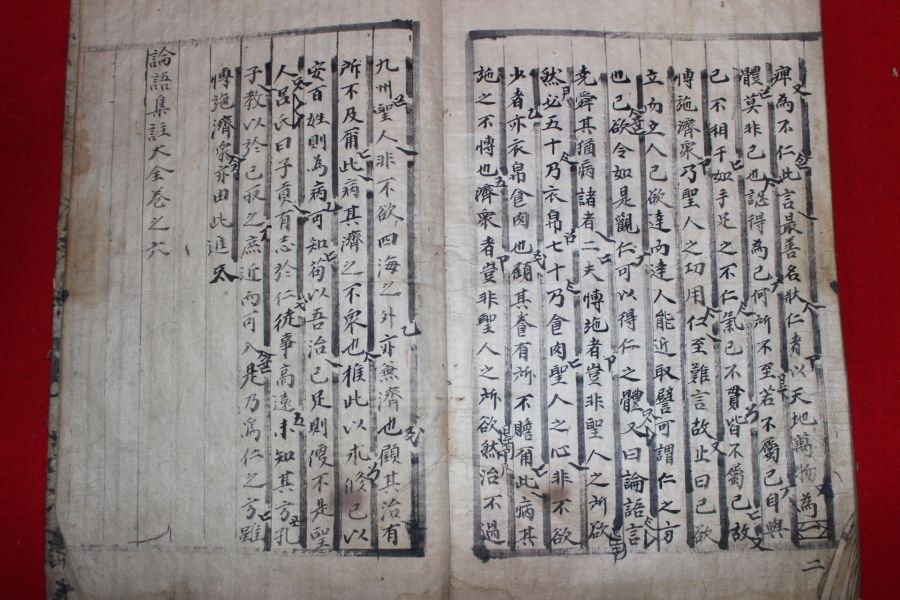 痺為不仁此言最善名狀仁者以天地萬物為一
體莫非己也認得為己何所不至若不屬己自與
己不相干如手足之不仁氣已不貫皆不屬己故
博施濟衆乃聖人之功用仁至難言故止曰己欲
立而立人己欲達而達人能近取譬可謂仁之方
也已欲令如是觀仁可以得仁之體又曰論語言
堯舜其猶病諸者二夫博施者豈非聖人之所欲
然必五十乃衣帛七十乃食肉聖人之心非不欲
少者亦衣帛食肉也顧其養有所不贍爾此病其
施之不博也濟衆者豈非聖人之所欲然治不過
九州聖人非不欲四海之外亦兼濟也顧其治有
所不及爾此病其濟之不衆也推此以求修己以
安百姓則為病可知苟以吾治已足則便不是聖
人呂氏曰子貢有志於仁徒事高遠未知其方孔
子教以於己取之庶近而可入是乃為仁之方雖
博施濟衆亦由此進
論語集註大全卷之六
二